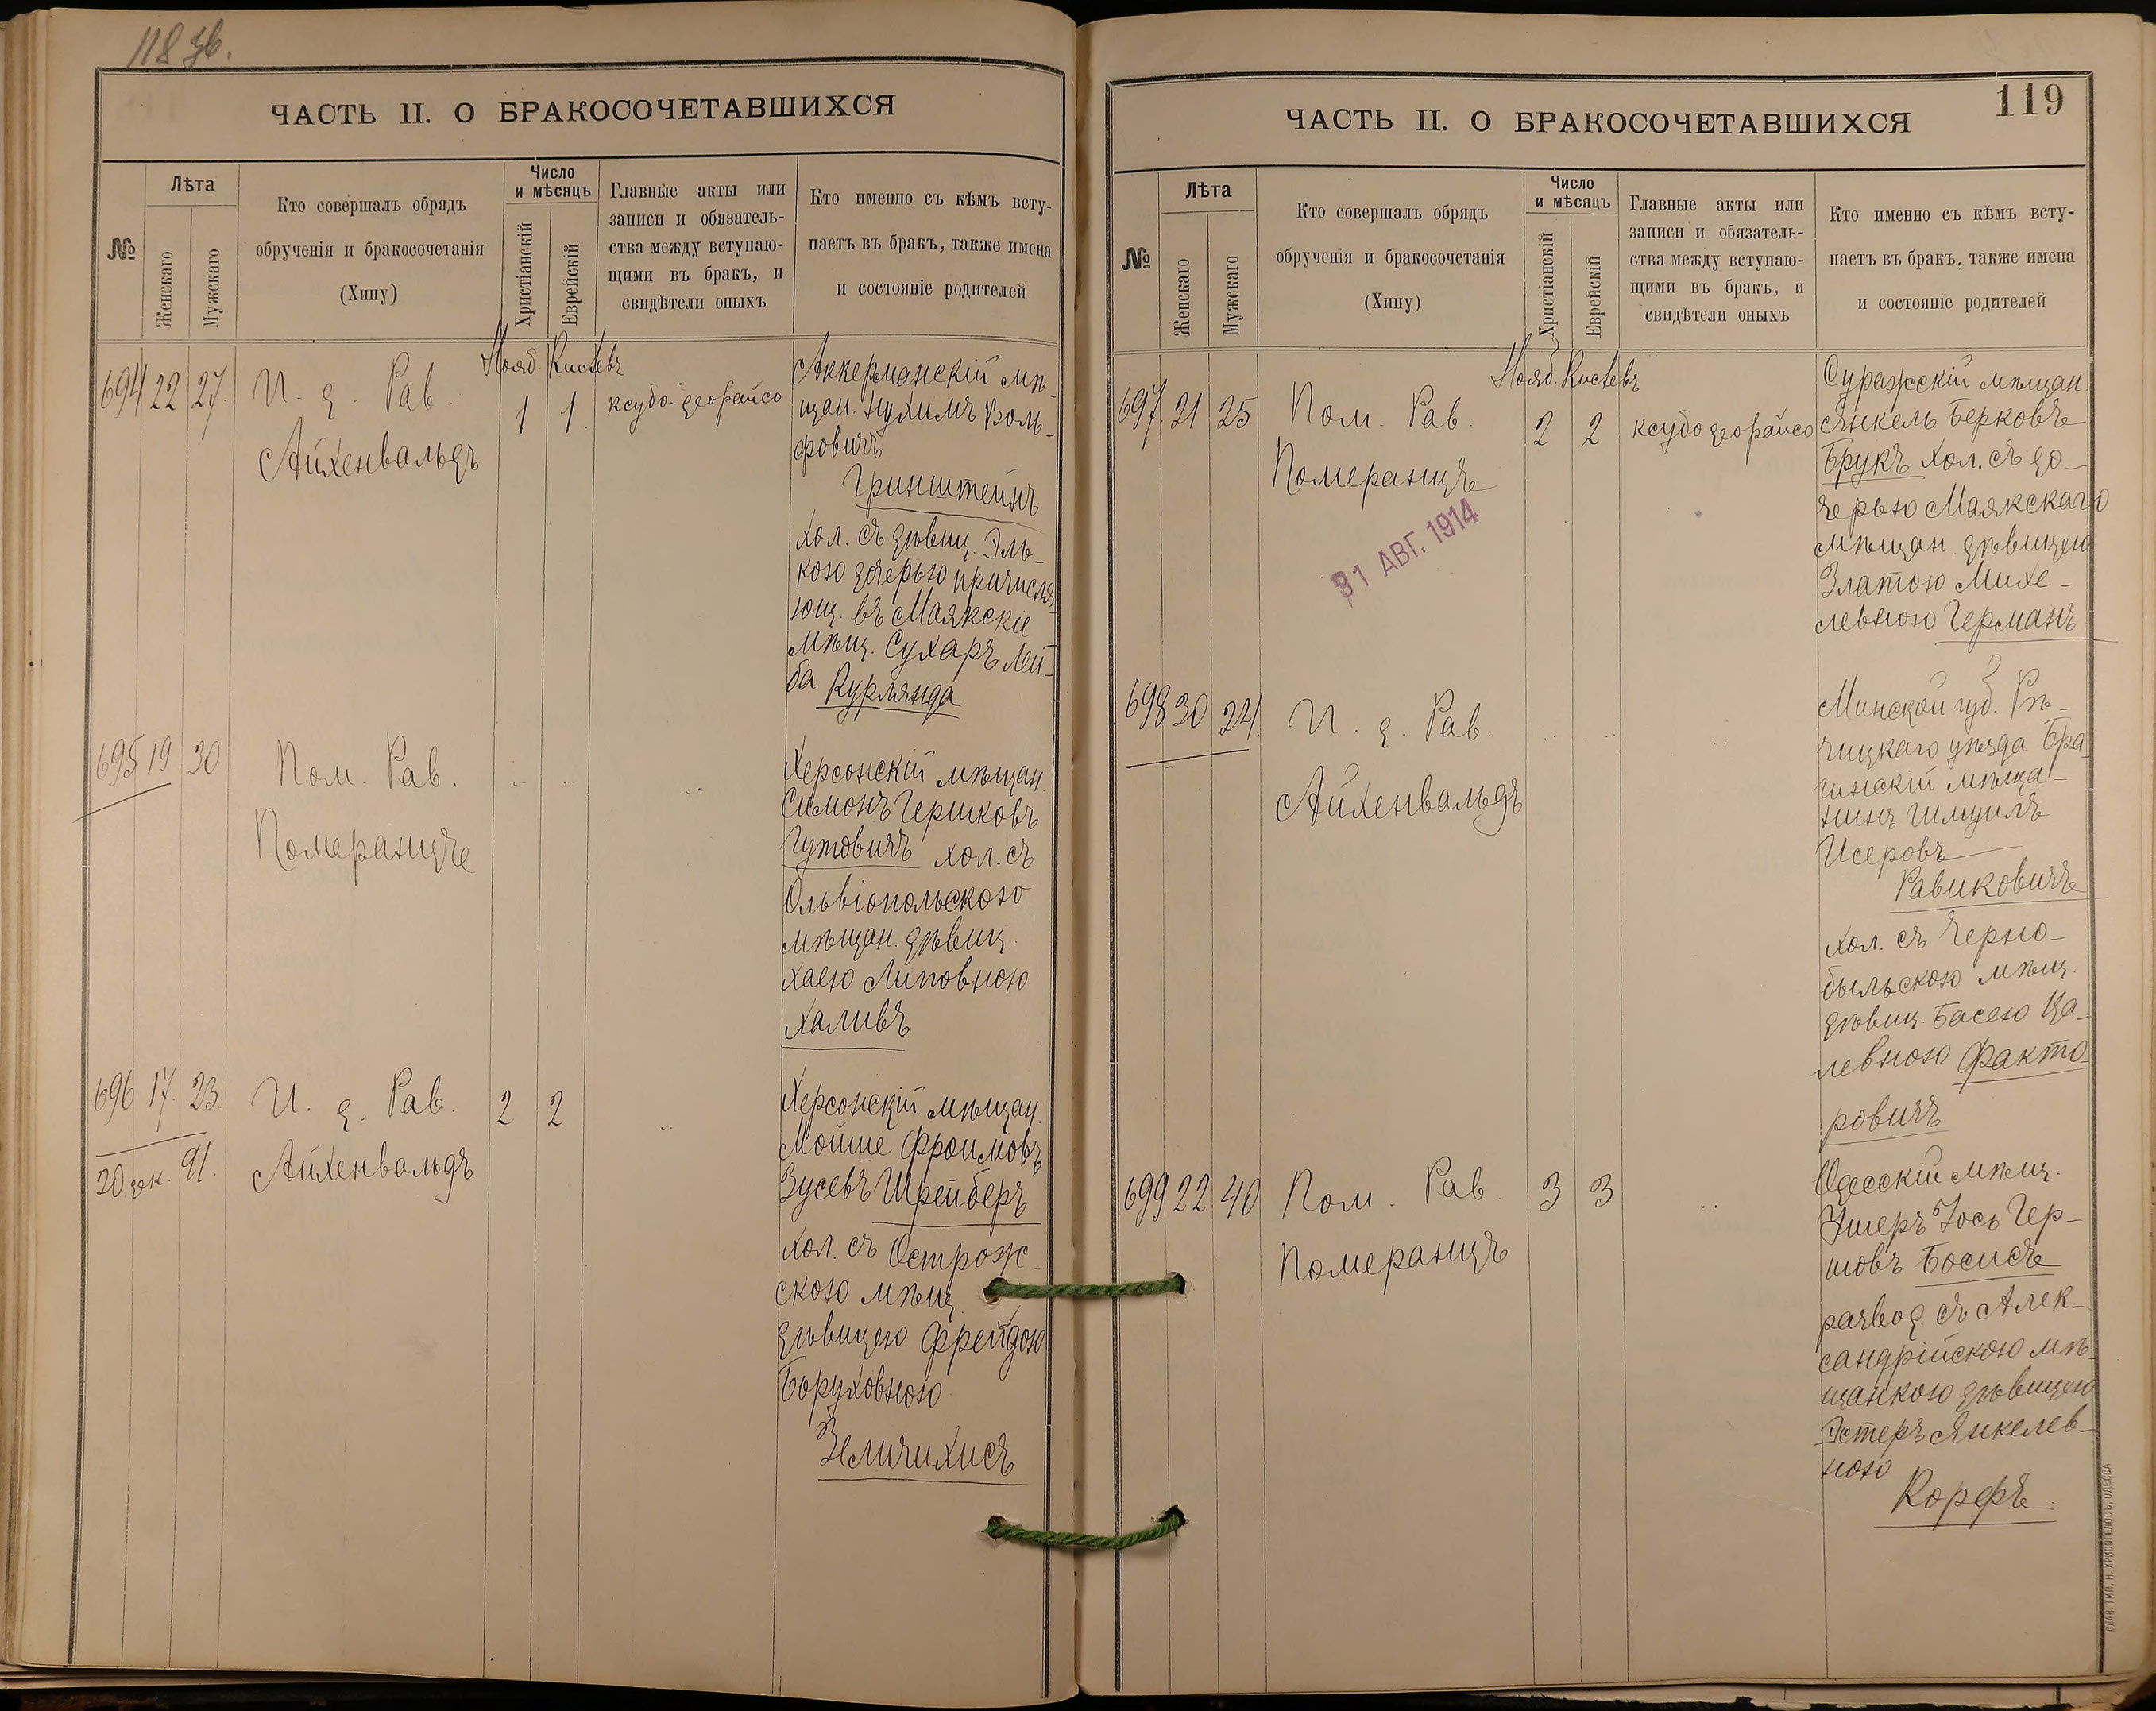 118 зв.
ЧАСТЬ II. О БРАКОСОЧЕТАВШИХСЯ
№
Лѣта
Женскаго
Мужскаго
Кто совершалъ обрядъ
обрученія и бракосочетанія
(Хипу)
Число
и мѣсяцъ
Христіанскій
Еврейскій
Главные акты или
записи и обязатель-
ства между вступаю-
щими въ бракъ, и
свидѣтели оныхъ
Кто именно съ кѣмъ всту-
паетъ въ бракъ, также имена
и состояніе родителей
Нояб. Кислевъ
694 22 27. И. д. Рав. 1 1. ксубо-деорайсо
Айхенвальдъ
Аккерманскій мѣ-
щан. Нухимъ Воль-
фовичъ
Гринштейнъ
хол. съ дѣвиц. Эль-
кою дочерью причисля-
ющ. въ Маякскіе
мѣщ. Сухаръ Лей-
ба Курлянда
695 19 30 Пом. Рав.
Померанцъ
Херсонскій мѣщан.
Симонъ Гершковъ
Гутовичъ хол. съ
Ольвіопольскою
мѣщан. дѣвиц.
Хаею Липовною
Халивъ
696 17. 23. И. д. Рав. 2 2
20 дек. 91. Айхенвальдъ
Херсонскій мѣщан.
Мойше Фроимовъ
Зусевъ Шрейберъ
хол. съ Острож-
скою мѣщ.
дѣвицею Фрейдою
Боруховною
Зеличихисъ
119
ЧАСТЬ II. О БРАКОСОЧЕТАВШИХСЯ
№
Лѣта
Женскаго
Мужскаго
Кто совершалъ обрядъ
обрученія и бракосочетанія
(Хипу)
Число
и мѣсяцъ
Христіанскій
Еврейскій
Главные акты или
записи и обязатель-
ства между вступаю-
щими въ бракъ, и
свидѣтели оныхъ
Кто именно съ кѣмъ всту-
паетъ въ бракъ, также имена
и состояніе родителей
Нояб. Кислевъ
697. 21 25 Пом. Рав. 2 2 ксубо деорайсо
Померанцъ
31 АВГ. 1914
Суражскій мѣщан.
Янкель Берковъ
Брукъ хол. съ до-
черью Маякскаго
мѣщан. дѣвицею
Златою Михе-
левною Германъ
698 30 24. И. д. Рав.
Айхенвальдъ
Минской губ. Рѣ-
чицкаго уѣзда Бра-
гинскій мѣща-
нинъ Шмуилъ
Исеровъ
Равиковичъ
хол. съ Черно-
быльскою мѣщ.
дѣвиц. Басею Ца-
левною Факто-
ровичъ
699 22 40 Пом. Рав. 3 3
Померанцъ
Одесскій мѣщ.
Ушеръ Іось Гер-
шовъ Босисъ
развод. съ Алек-
сандрійскою мѣ-
щанкою дѣвицею
Эстеръ Янкелев-
ною
Корфъ.
СЛАВ. ТИП. Н. ХРИСОГЕЛОСЪ, ОДЕССА